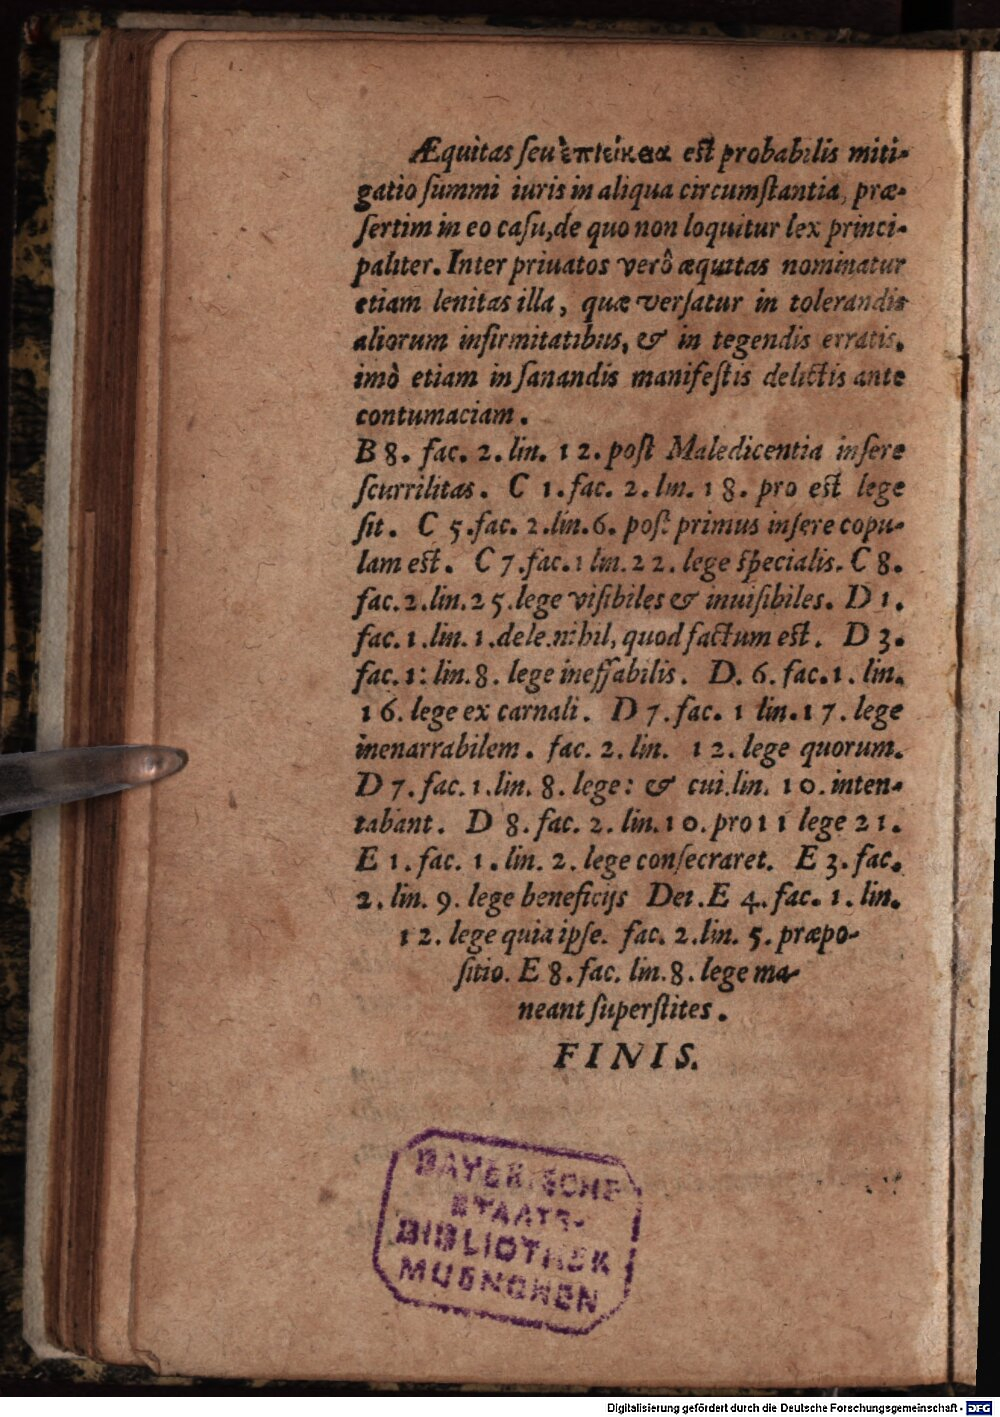 Æquitas ſeu ἐπιείκεια est probabilis miti-
gatio ſummi iuris in aliqua circumſtantia, præ-
ſertim in eo caſu, de quo non loquitur lex princi-
paliter. Inter priuatos verò æquitas nominatur
etiam lenitas illa, quæ verſatur in tolerandis
aliorum infirmitatibus, & in tegendis erratis,
imò etiam in ſanandis manifeſtis delictis ante
contumaciam.
B 8. fac. 2. lin. 12. poſt Maledicentia inſere
ſcurrilitas. C 1. fac. 2. lin. 18. pro est lege
ſit. C 5. fac. 2. lin. 6. poſt primus inſere copu-
lam est. C 7. fac. 1 lin. 22. lege specialis. C 8.
fac. 2. lin. 25. lege viſibiles & inuiſibiles. D 1.
fac. 1. lin. 1. dele. nihil, quod factum est. D 3.
fac. 1: lin. 8. lege ineffabilis. D. 6. fac. 1. lin.
16. lege ex carnali. D 7. fac. 1 lin. 17. lege
inenarrabilem. fac. 2. lin. 12. lege quorum.
D 7. fac. 1. lin. 8. lege: & cui. lin. 10. inten-
tabant. D 8. fac. 2. lin. 10. pro 11 lege 21.
E 1. fac. 1. lin. 2. lege conſecraret. E 3. fac.
2. lin. 9. lege beneficijs Dei. E 4. fac. 1. lin.
12. lege quia ipſe. fac. 2. lin. 5. præpo-
ſitio. E 8. fac. lin. 8. lege ma-
neant ſuperſtites.
FINIS.
BAYERISCHE
STAATS-
BIBLIOTHEK
MUENCHEN
Digitalisierung gefördert durch die Deutsche Forschungsgemeinschaft - DFG